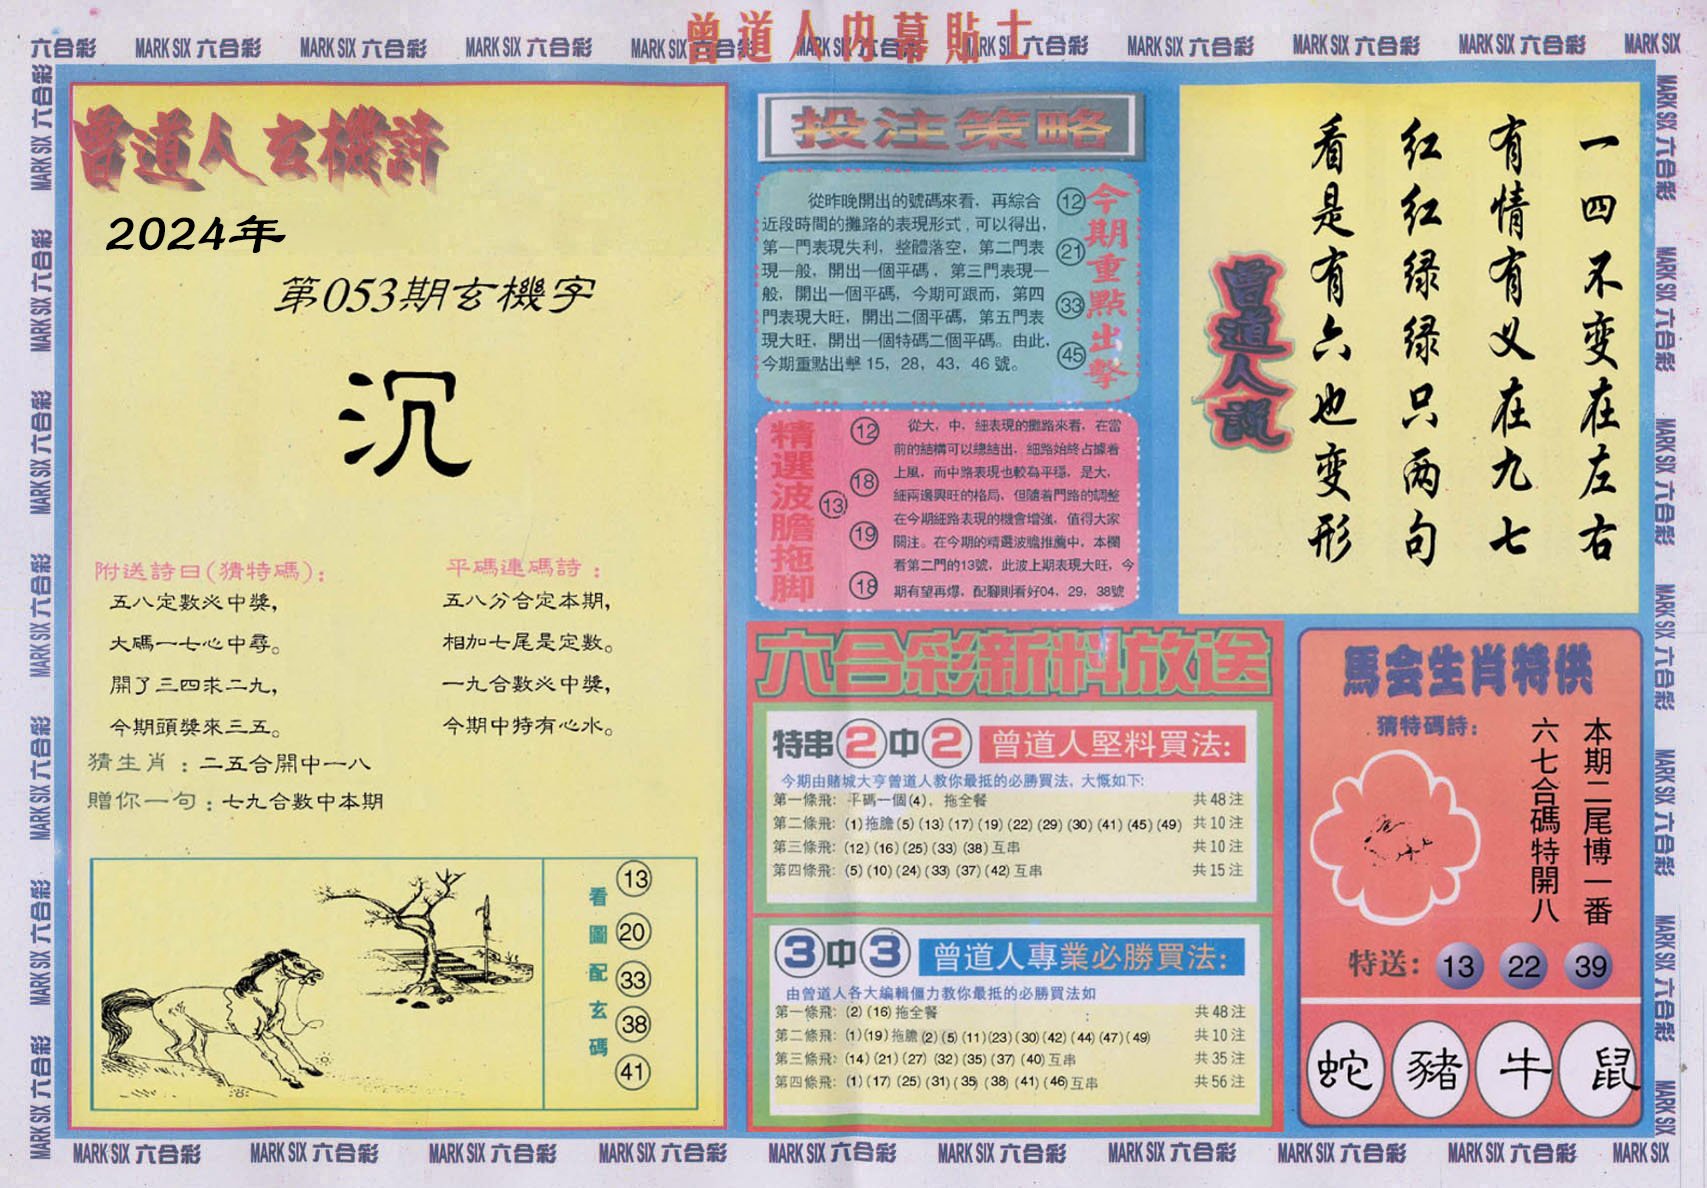 曾道人内幕貼士
六合彩 MARK SIX 六合彩 MARK SIX 六合彩 MARK SIX 六合彩 MARK SIX 六合彩 MARK SIX 六合彩 MARK SIX 六合彩 MARK SIX 六合彩 MARK SIX 六合彩 MARK SIX 六合彩 MARK SIX
曾道人玄機詩
2024年
第053期玄機字
沉
附送詩曰(猜特碼):
五八定數必中獎,
大碼一七心中尋。
開了三四求二九,
今期頭獎來三五。
平碼連碼詩:
五八分合定本期,
相加七尾是定數。
一九合數必中獎,
今期中特有心水。
猜生肖:二五合開中一八
贈你一句:七九合數中本期
看圖配玄碼
13
20
33
38
41
投注策略
從昨晚開出的號碼來看，再綜合
近段時間的攤路的表現形式，可以得出，
第一門表現失利，整體落空，第二門表
現一般，開出一個平碼，第三門表現一
般，開出一個平碼，今期可跟而，第四
門表現大旺，開出二個平碼，第五門表
現大旺，開出一個特碼二個平碼。由此，
今期重點出擊 15，28，43，46 號。
12
21
33
45
今期重點出擊
精選波膽拖脚
12
18
13
19
18
從大，中，細表現的攤路來看，在當
前的結構可以總結出，細路始終占據着
上風，而中路表現也較為平穩，是大，
細兩邊興旺的格局，但隨着門路的調整
在今期細路表現的機會增強，值得大家
關注。在今期的精選波膽推薦中，本欄
看第二門的13號，此波上期表現大旺，今
期有望再爆，配腳則看好04，29，38號
曾道人說
一四不变在左右
有情有义在九七
红红绿绿只两句
看是有六也变形
六合彩新料放送
特串2中2 曾道人堅料買法:
今期由賭城大亨曾道人教你最抵的必勝買法，大慨如下:
第一條飛: 平碼一個(4)，拖全餐 共48注
第二條飛: (1)拖膽(5)(13)(17)(19)(22)(29)(30)(41)(45)(49) 共10注
第三條飛: (12)(16)(25)(33)(38)互串 共10注
第四條飛: (5)(10)(24)(33)(37)(42)互串 共15注
3中3 曾道人專業必勝買法:
由曾道人各大編輯僵力教你最抵的必勝買法如
第一條飛: (2)(16)拖全餐 共48注
第二條飛: (1)(19)拖膽(2)(5)(11)(23)(30)(42)(44)(47)(49) 共10注
第三條飛: (14)(21)(27)(32)(35)(37)(40)互串 共35注
第四條飛: (1)(17)(25)(31)(35)(38)(41)(46)互串 共56注
馬会生肖特供
猜特碼詩:
本期二尾博一番
六七合碼特開八
特送: 13 22 39
蛇 豬 牛 鼠
MARK SIX 六合彩 MARK SIX 六合彩 MARK SIX 六合彩 MARK SIX 六合彩 MARK SIX 六合彩 MARK SIX 六合彩 MARK SIX 六合彩 MARK SIX 六合彩 MARK SIX 六合彩 MARK SIX